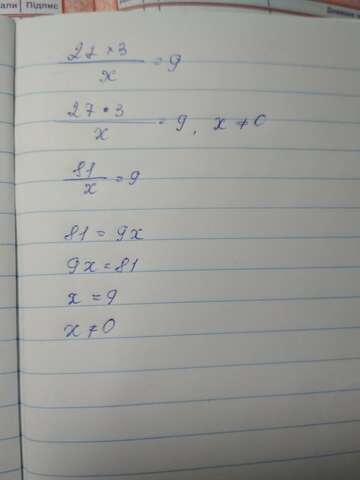 Підпис
27 * 3 / x = 9
27 * 3 / x = 9, x ≠ 0
81 / x = 9
81 = 9x
9x = 81
x = 9
x ≠ 0